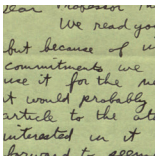 Dear Professor
We read you
but because of
commitments we
use it for the
it would probably
article to the at
interested in it
forward to seein